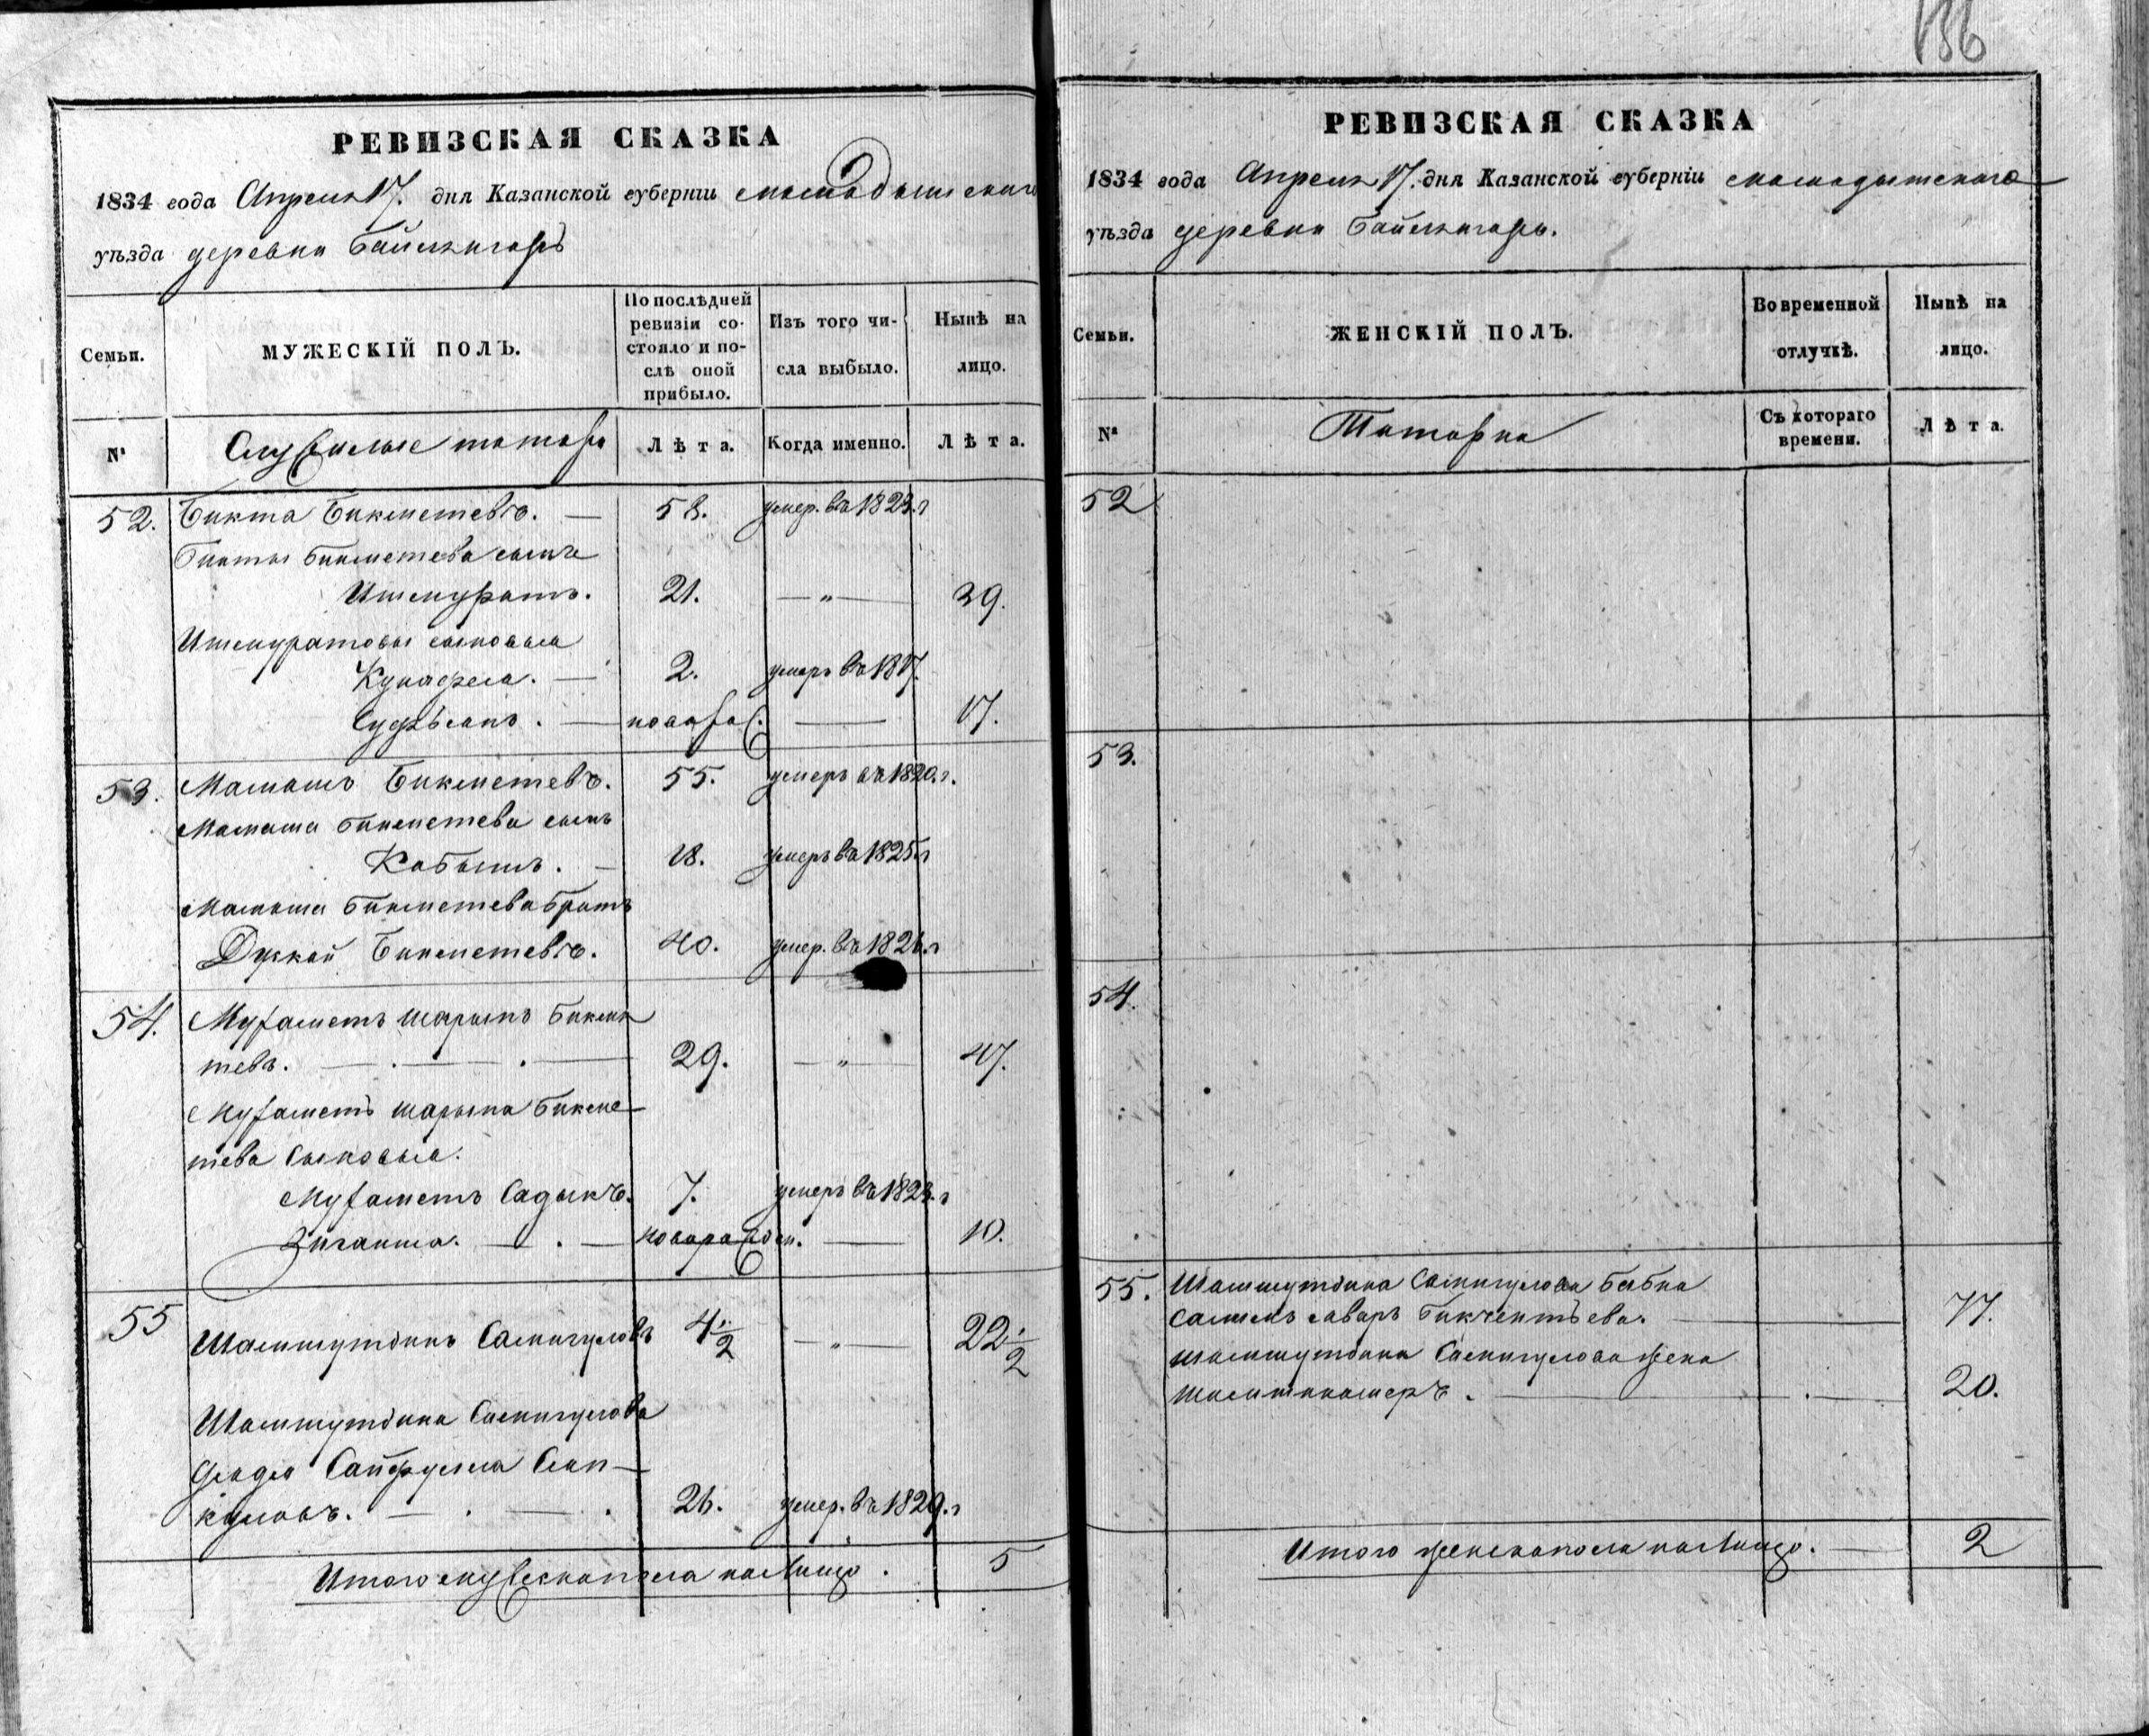 136
РЕВИЗСКАЯ СКАЗКА
1834 года Апреля 17. дня Казанской губерніи Мамадышскаго
уѣзда деревни
Семьи.
МУЖЕСКІЙ ПОЛЪ.
По послѣдней ревизіи со-
стояло и по-
слѣ оной
прибыло.
Изъ того чи-
сла выбыло.
Нынѣ на
лицо.
№
Служилые татары
Лѣта.
Когда именно.
Лѣта.
52. Бикта Бикметевъ. — 58. умер. въ 1823. г
Бикты Бикметева сынъ
Ишмуратъ. 21. — „ — 39.
Ишмуратовы сыновья
2. умеръ въ 1817.
новорож. — 17.
53. Мамашъ Бикметевъ. 55. умеръ въ 1820. г.
Мамаша Бикметева сынъ
Кабышъ. — 18. умеръ въ 1825. г
Мамаша Бикметева братъ
Бикметевъ. 40. умер. въ 1826. г
54. Мухаметъ Шарыпъ Бикме
тевъ. — . — . — 29. — „ — 47.
Мухаметъ Шарыпа Бикме-
тева сыновья.
Мухаметъ Садыкъ. 7. умеръ въ 1823. г
Зиганша. — . — новорожден. — 10.
55 Шамшутдинъ 4 1/2 — „ — 22 1/2
Шамшутдина
дядя Сайфулла
куловъ. — . — . 26. умер. въ 1829. г
Итого мужеска пола на лицо . 5
РЕВИЗСКАЯ СКАЗКА
1834 года Апреля 17. дня Казанской губерніи Мамадышскаго
уѣзда деревни
Семьи.
ЖЕНСКІЙ ПОЛЪ.
Во временной
отлучкѣ.
Нынѣ на
лицо.
№
Татарки
Съ котораго
времени.
Лѣта.
52
53.
54.
55. Шамшутдина бабка
77.
Шамшутдина жена
20.
Итого женска пола на лицо. — 2